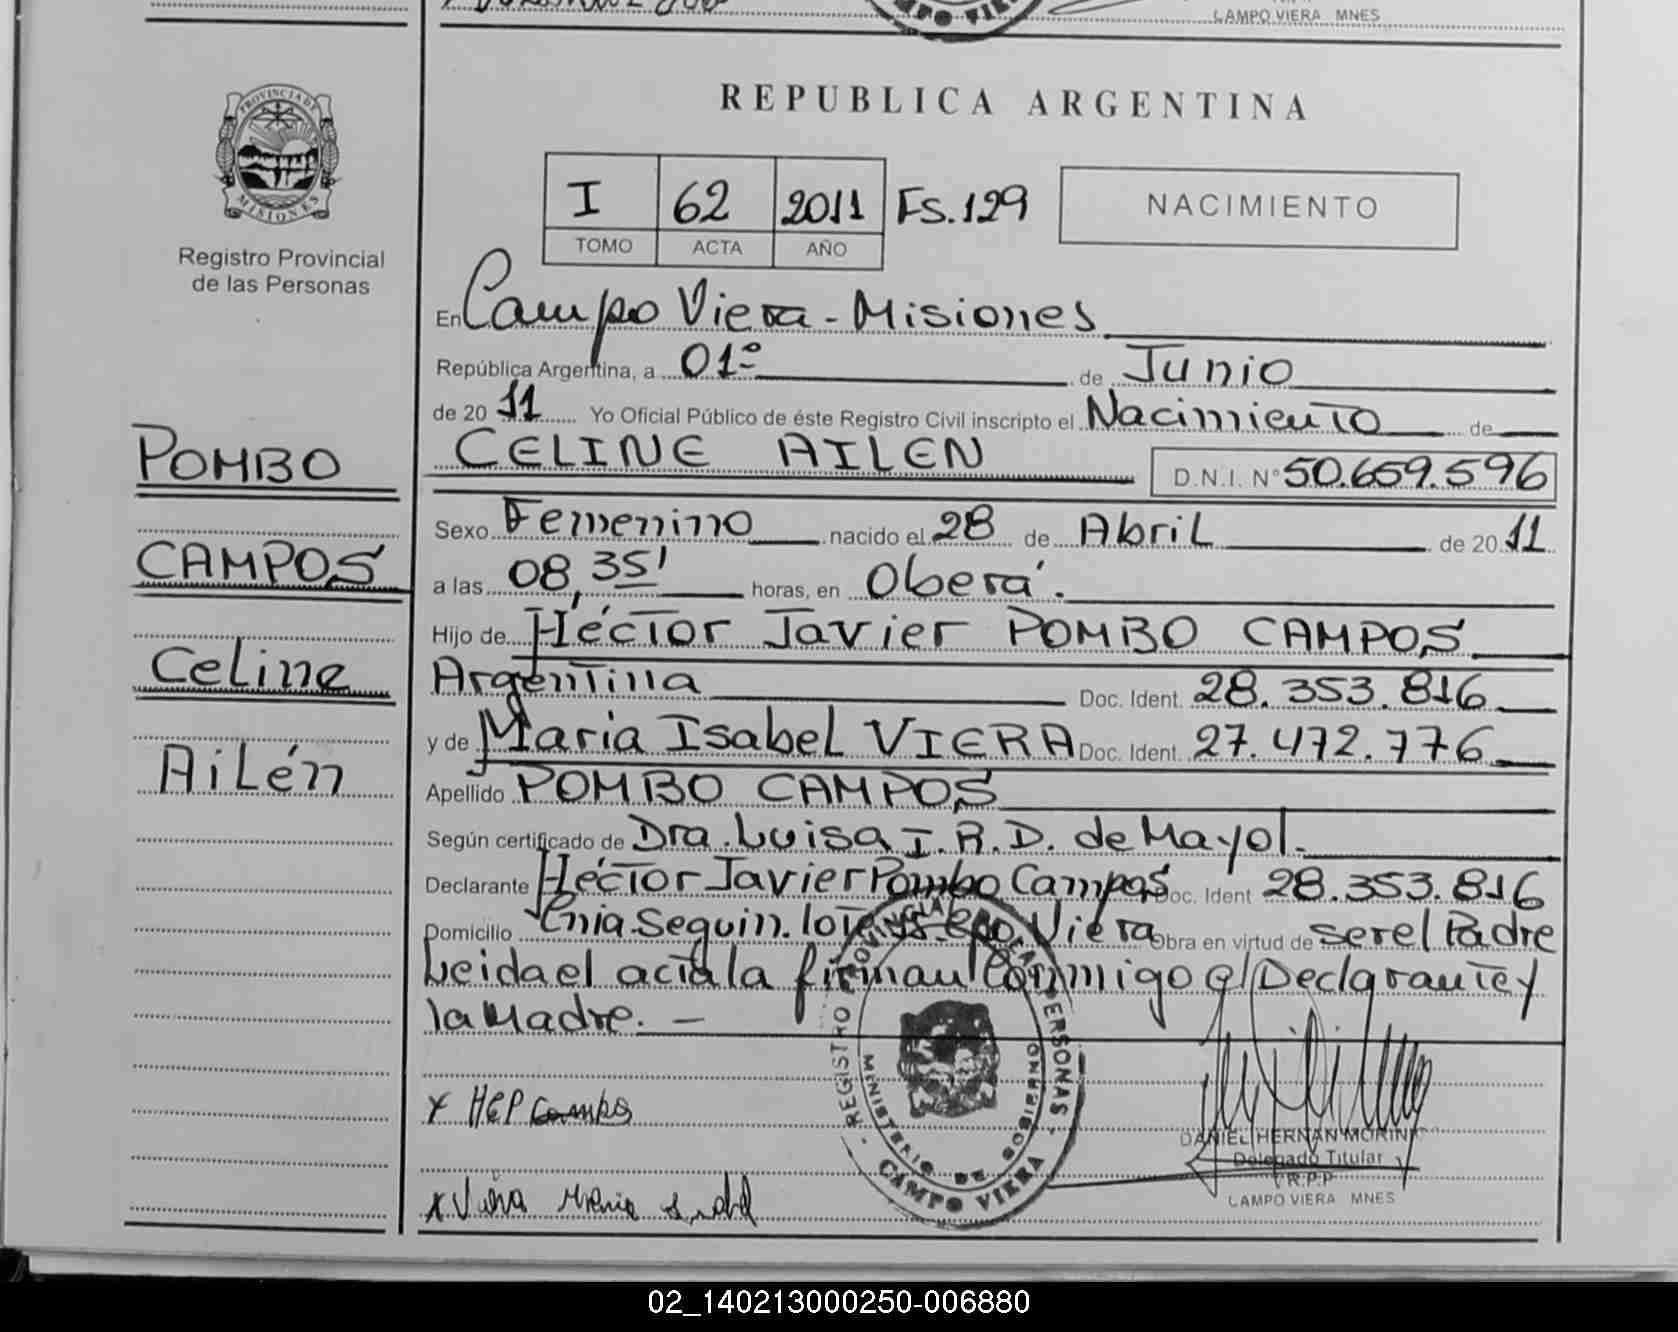 CAMPO VIERA
CAMPO VIERA MNES
PROVINCIA DE
MISIONES
Registro Provincial
de las Personas
REPUBLICA ARGENTINA
I 62 2011 Fs.129
TOMO ACTA AÑO
NACIMIENTO
En Campo Viera - Misiones
República Argentina, a 01º de Junio
de 20 11 Yo Oficial Público de éste Registro Civil inscripto el Nacimiento de
CELINE AILEN D.N.I. Nº 50.659.596
Sexo Femenino nacido el 28 de Abril de 20 11
a las 08,35' horas, en Oberá.
Hijo de Héctor Javier POMBO CAMPOS
Argentina Doc. Ident. 28.353.816
y de Maria Isabel VIERA Doc. Ident. 27.472.776
Apellido POMBO CAMPOS
Según certificado de Dra. Luisa I. R. D. de Mayol.
Declarante Héctor Javier Pombo Campos Doc. Ident 28.353.816
Domicilio Cnia. Seguin. lote Cpo. Viera Obra en virtud de ser el Padre
Leida el acta la firman conmigo el Declarante y
la Madre. —
POMBO
CAMPOS
Celine
Ailén
REGISTRO PROVINCIAL DE LAS PERSONAS
MINISTERIO DE GOBIERNO
CAMPO VIERA
x HCP Campos
x Viera Maria Isabel
DANIEL HERNAN MORINI
Delegado Titular
R.P.P
CAMPO VIERA MNES
02_140213000250-006880